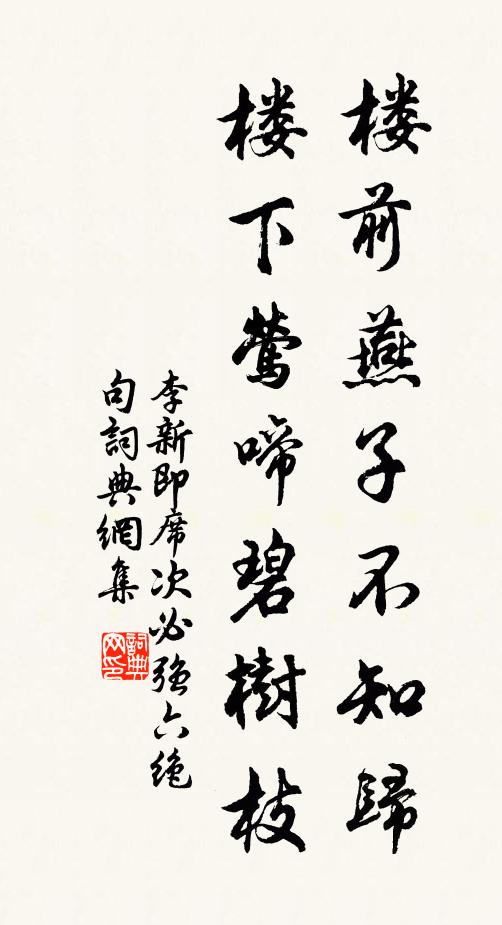 楼前燕子不知歸
楼下鶯啼碧樹枝
李新即席次必强六絶
句詞典網集
詞典网印